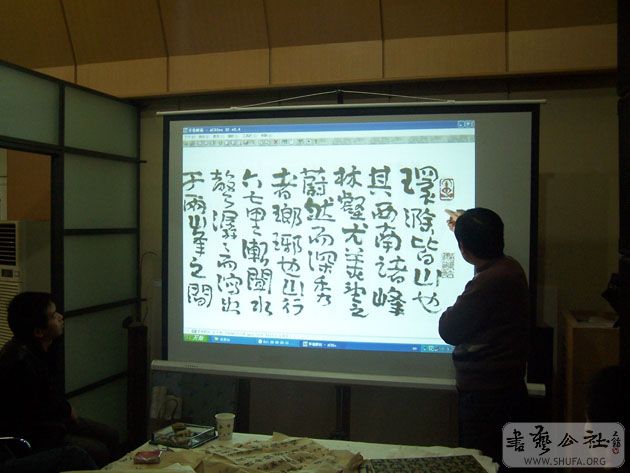 環滁皆山也
其西南諸峰
林壑尤美望之
蔚然而深秀
者瑯琊也山行
六七里漸聞水
聲潺〻而瀉出
于兩峰之間
開始
書藝公社
WWW.SHUFA.ORG